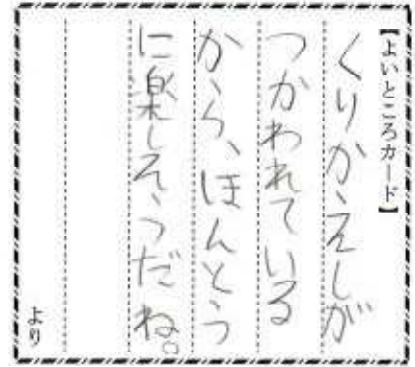 【よいところカード】
くりかえしが
つかわれている
から、ほんとう
に楽しそうだね。
より